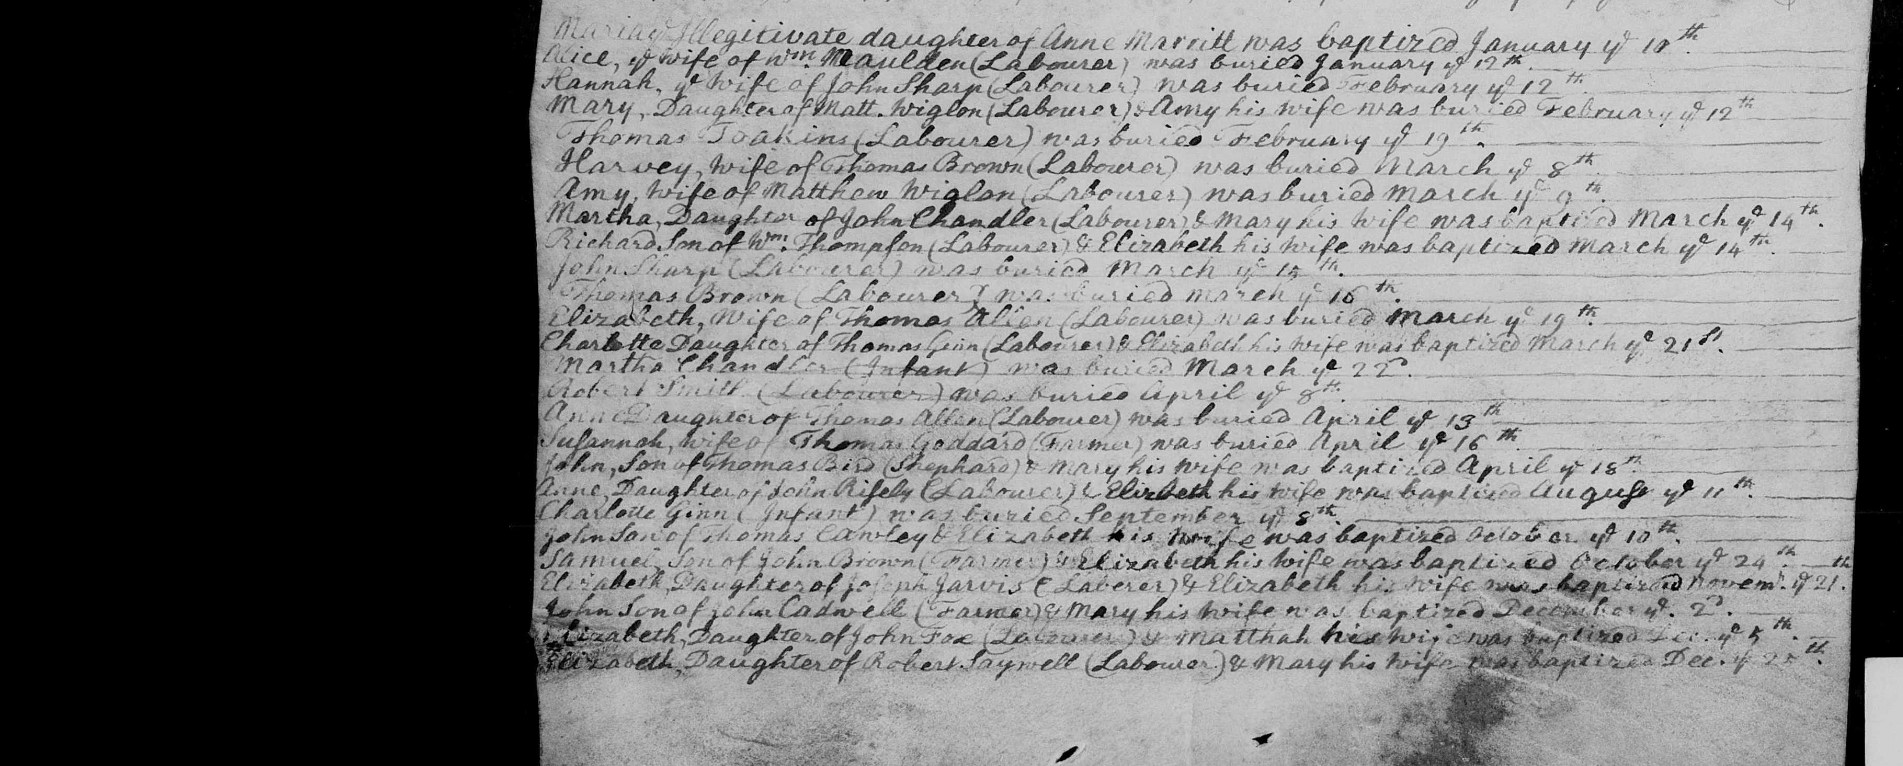 Illegitivate daughter of Anne Marritt was baptized January yᵉ 10th.
Alice, yᵉ wife of Wm. Maulden (Labourer) was buried January yᵉ 12th.
Hannah, yᵉ Wife of John Sharp (Labourer) was buried February yᵉ 12th.
Mary, Daughter of Matt. Wiglon (Labourer) & Amy his wife was buried February yᵉ 12th
Thomas Toakins (Labourer) was buried February yᵉ 19th.
Harvey, wife of Thomas Brown (Labourer) was buried March yᵉ 8th
Amy, Wife of Matthew Wiglon (Labourer) was buried March yᵉ 9th.
Martha, Daughter of John Chandler (Labourer) & Mary his wife was baptized March yᵉ 14th.
Richard, Son of Wm. Thompson (Labourer) & Elizabeth his wife was baptized March yᵉ 14th.
John Sharp (Labourer) was buried March yᵉ 15th.
Thomas Brown (Labourer) was buried march yᵉ 16th.
Elizabeth, Wife of Thomas Allen (Labourer) was buried March yᵉ 19th.
Charlotte Daughter of Thomas Ginn (Labourer) & Elizabeth his wife was baptized March yᵉ 21st.
Martha Chandler (Infant) was buried March yᵉ 22d.
Robert Smith (Labourer) was buried April yᵉ 8th.
Anne Daughter of Thomas Allen (Labourer) was buried April yᵉ 13th
Susannah, wife of Thomas Goddard (Farmer) was buried April yᵉ 16th
John, Son of Thomas Bird (Shephard) & Mary his wife was baptized April yᵉ 18th
Anne, Daughter of John Risely (Labourer) & Elizbeth his wife was baptized August yᵉ 11th.
Charlotte Ginn (Infant) was buried September yᵉ 8th.
John Son of Thomas Cawley & Elizabeth his wife was baptized October yᵉ 10th.
Samuel, Son of John Brown (Farmer) & Elizabeth his wife was baptized October yᵉ 24th
Elizabeth, Daughter of Joseph Jarvis (Laberer) & Elizabeth his wife was baptized Novemr. yᵉ 21th.
John Son of John Cadwell (Farmer) & Mary his wife was baptized December yᵉ. 2d.
Elizabeth, Daughter of John Fox (Labourer) & Matthah his wife was baptized Dec. yᵉ 5th.
Elizabeth, Daughter of Robert Saywell (Labourer) & Mary his wife was baptized Dec. yᵉ